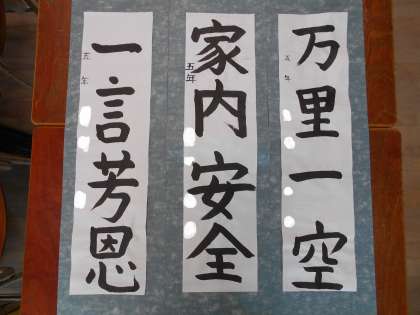 万里一空
五年
家内安全
五年
一言芳恩
五年